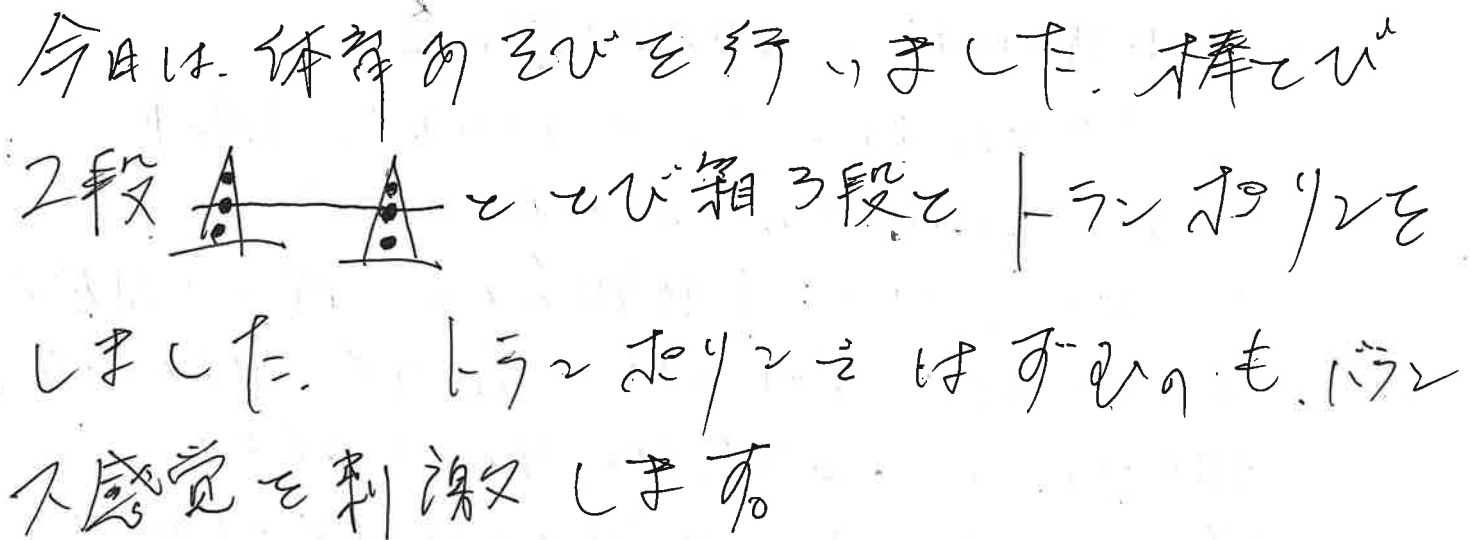 今日は、体育あそびを行いました。棒とび
2段 ととび箱3段とトランポリンを
しました。 トランポリンをはずむのも、バラン
ス感覚を刺激します。